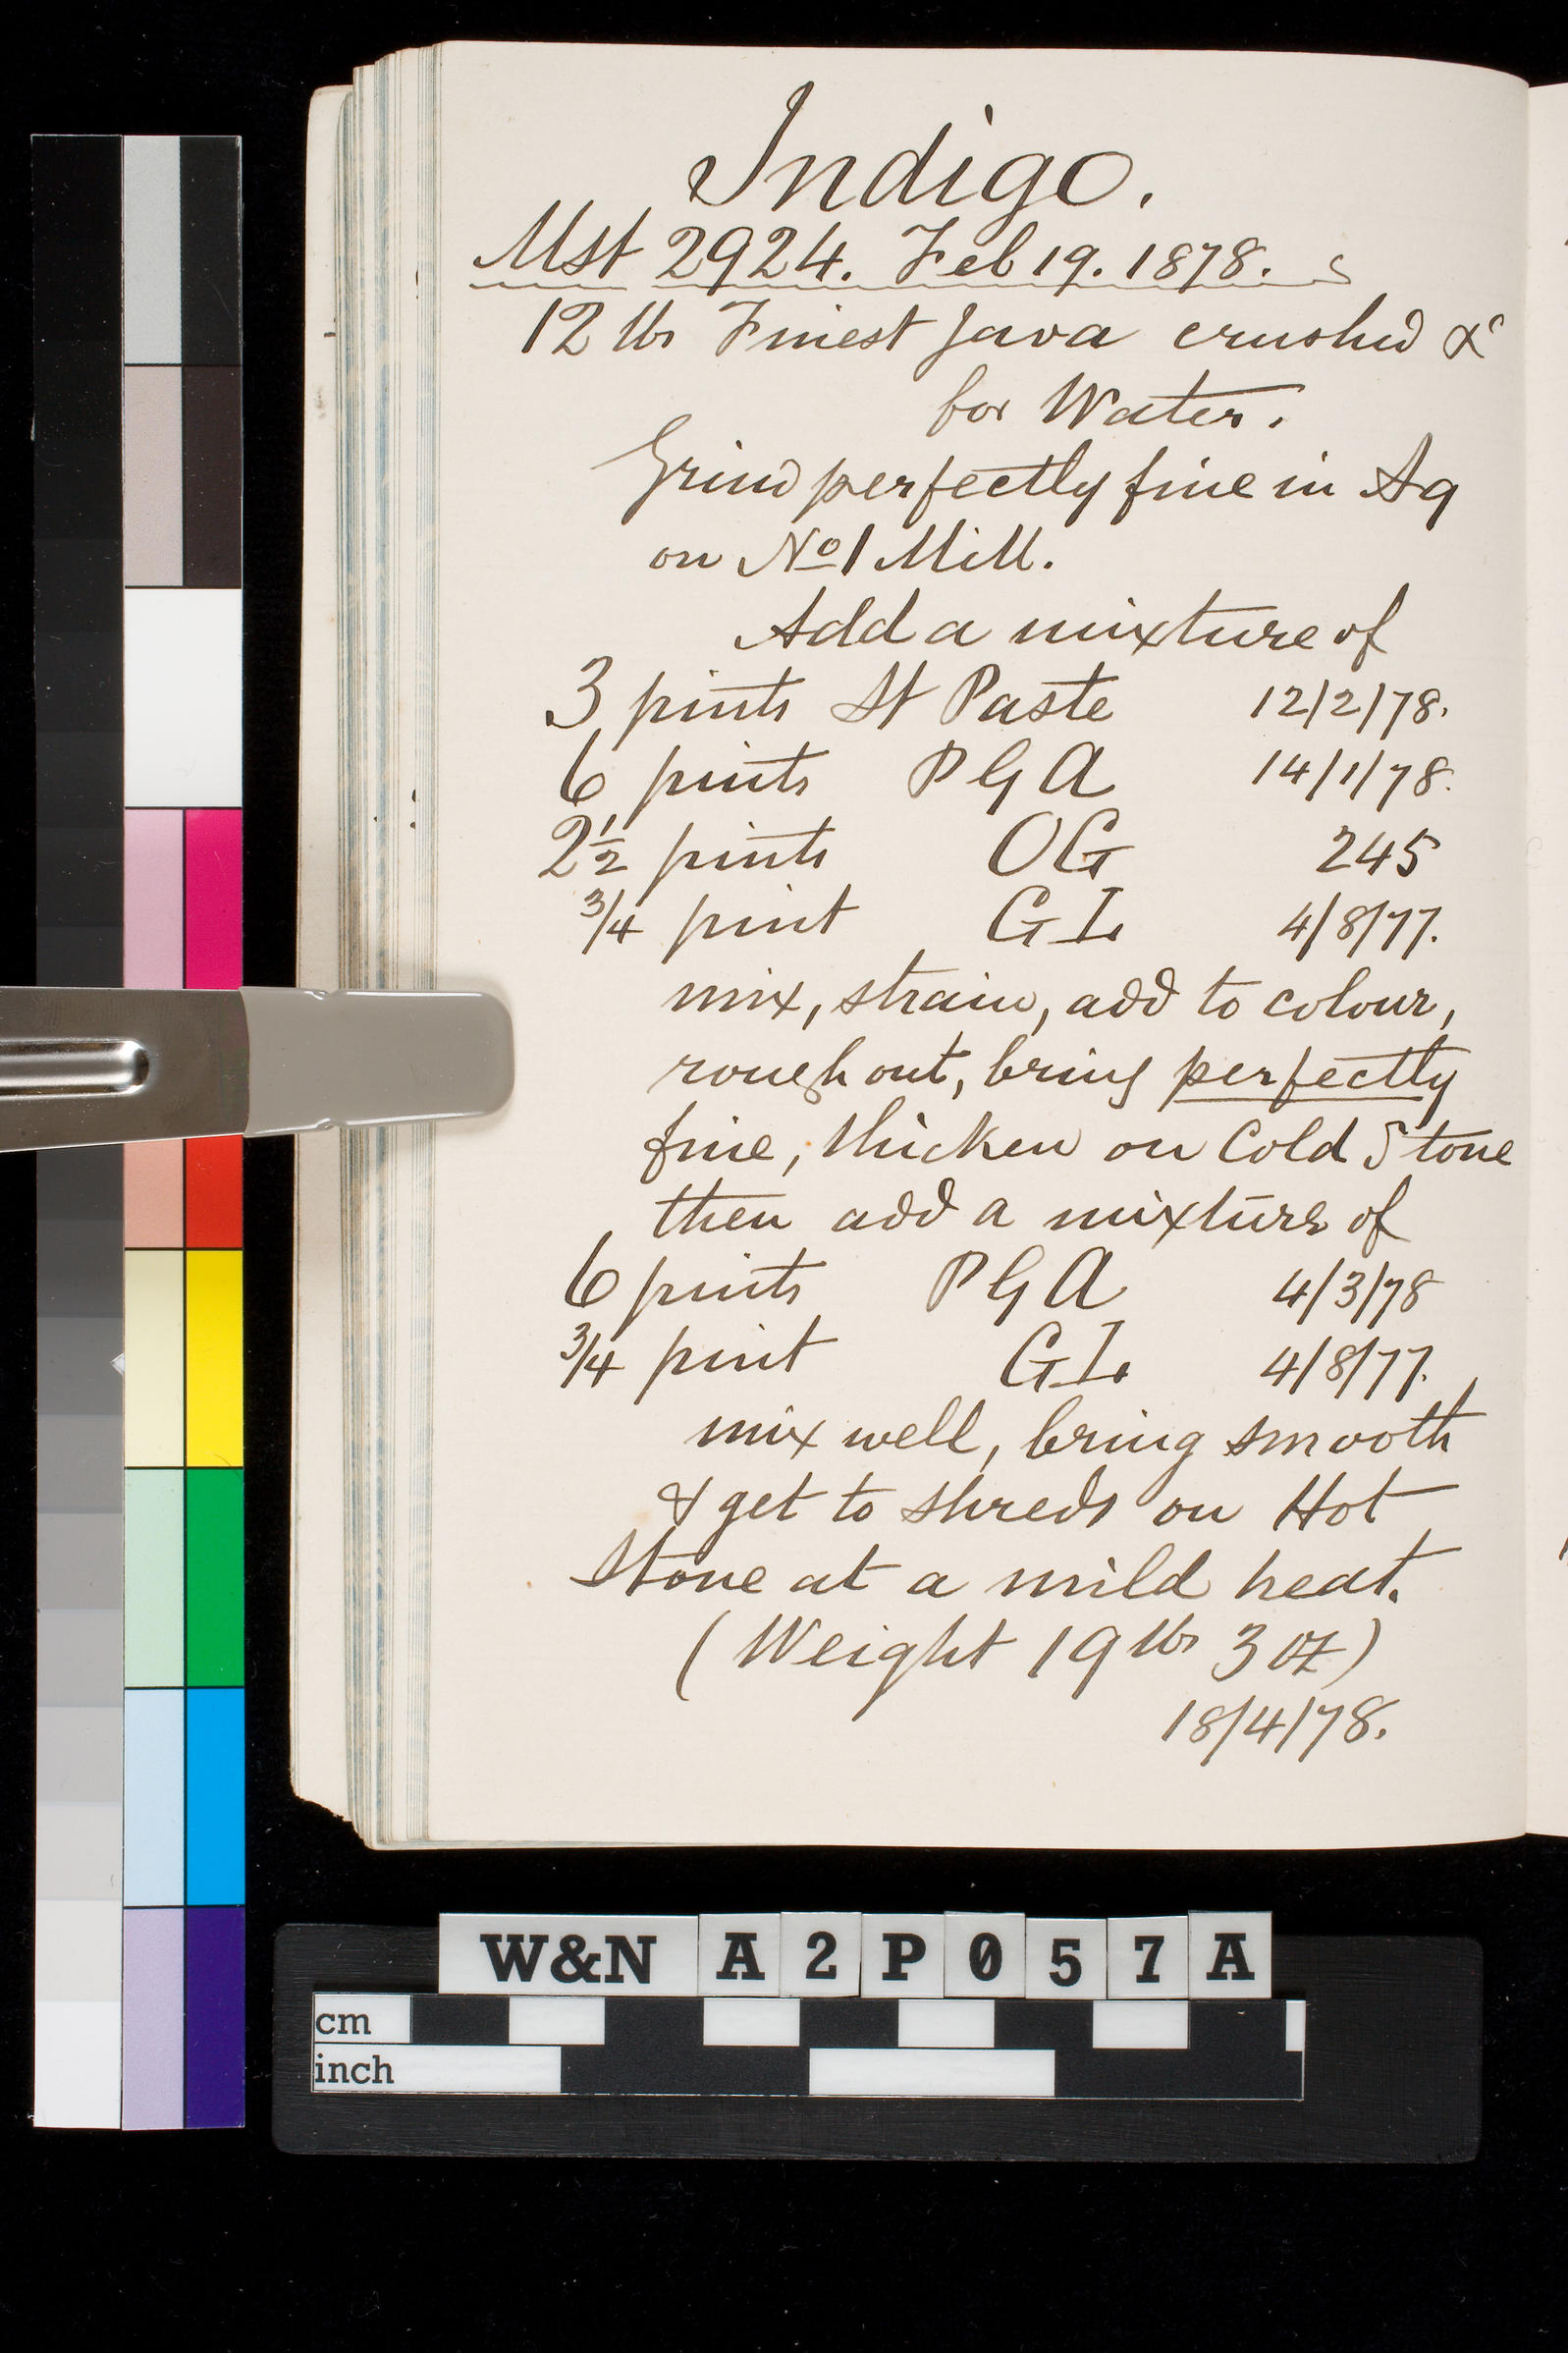 Indigo.
Mst 2924. Feb 19. 1878.
12 lbs Finest Java crushed &c
for Water.
Grind perfectly fine in Aq
on No 1 Mill.
Add a mixture of
3 pints St Paste 12/2/78.
6 pints P G A 14/1/78.
2½ pints OG 245
3/4 pint G I. 4/8/77.
mix, strain, add to colour,
rough out, bring perfectly
fine, thicken on Cold Stone
then add a mixture of
6 pints P G A 4/3/78
3/4 pint G I. 4/8/77.
mix well, bring smooth
& get to shreds on Hot
Stone at a mild heat.
(Weight 19 lbs 3 oz)
18/4/78.
W&N A2P057A
cm
inch